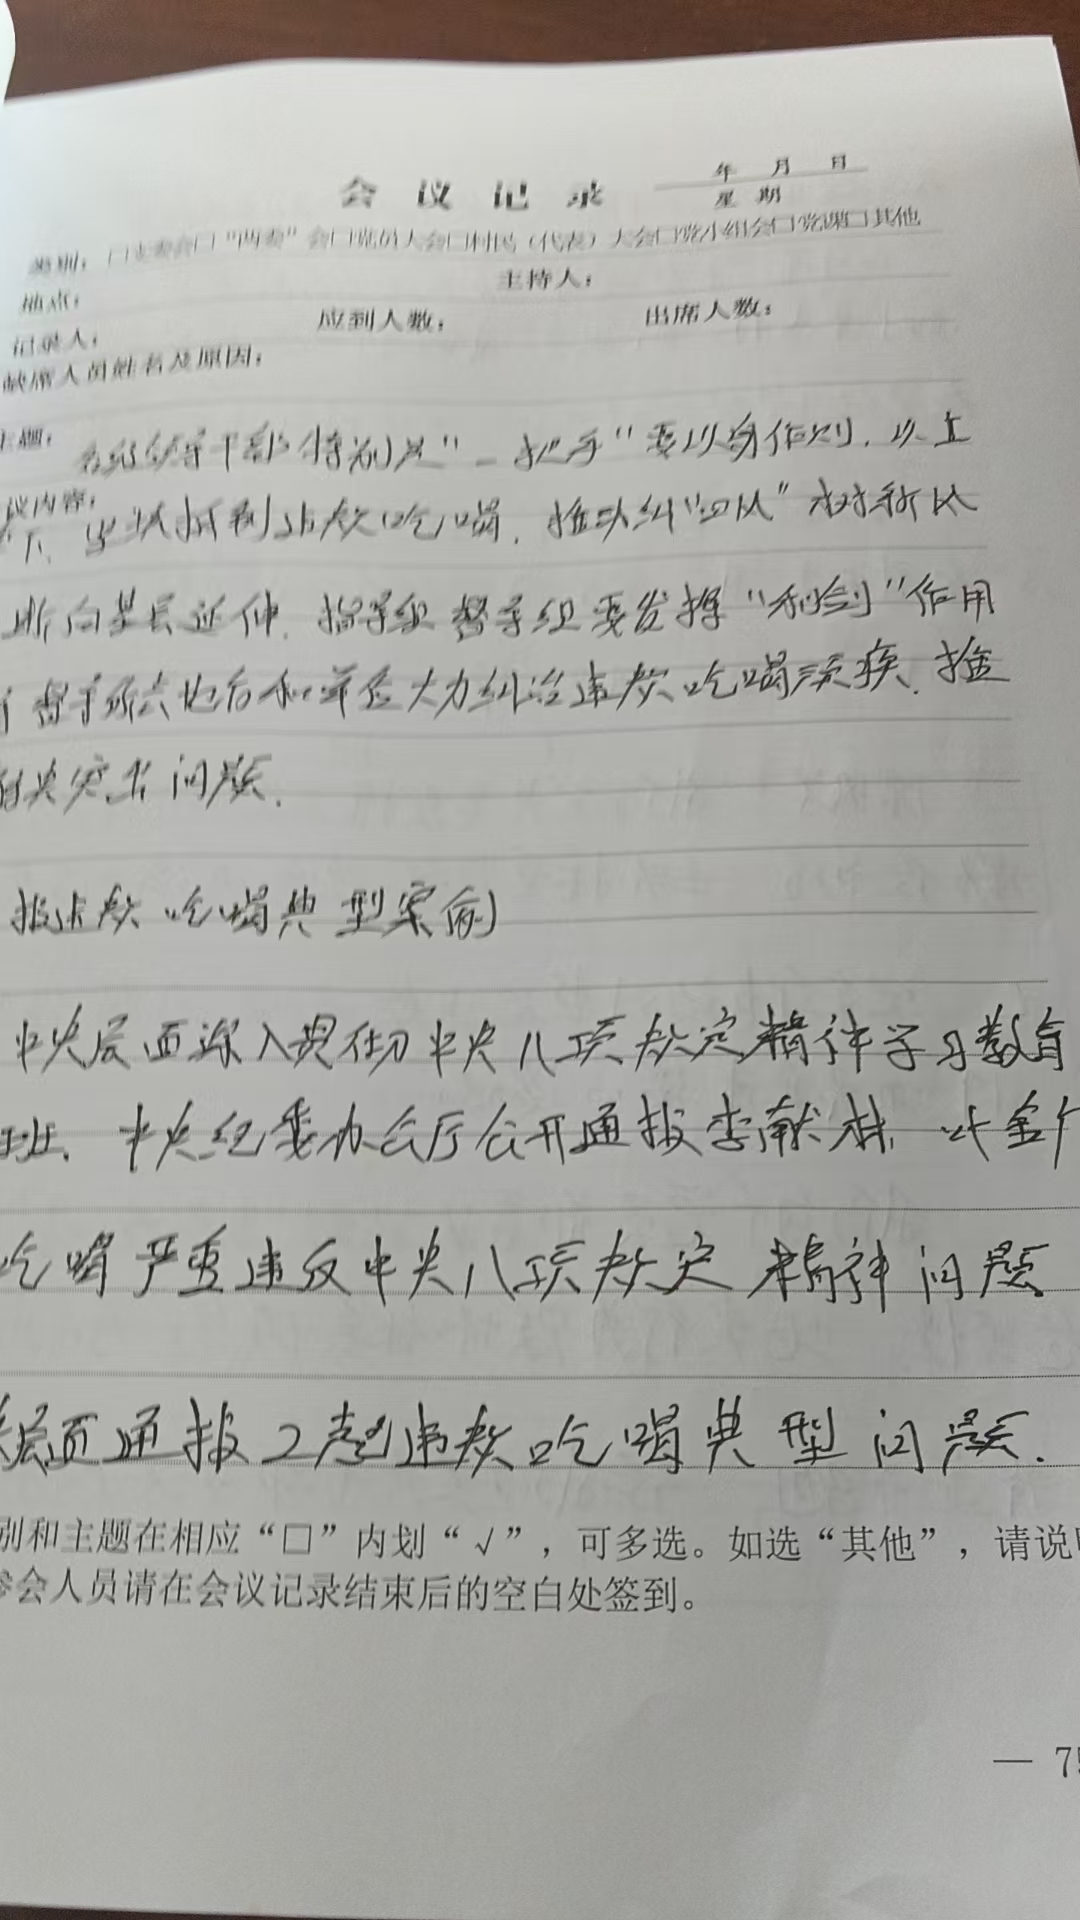 会议记录
年 月 日
星期
类别：□支委会□“两委”会□党员大会□村民（代表）大会□党小组会□党课□其他
地点： 主持人：
记录人： 应到人数： 出席人数：
缺席人员姓名及原因：
主题：
各级领导干部特别是“一把手”要以身作则，以上
议内容：
下，坚决抵制违规吃喝，推动纠“四风”树新风
断向基层延伸，指导组督导组要发挥“利剑”作用
督导所去地方和单位大力纠治违规吃喝顽疾，推
解决突出问题.
报违规吃喝典型案例
中央层面深入贯彻中央八项规定精神学习教育
班、中央纪委办公厅公开通报李献林、叶金广
吃喝严重违反中央八项规定精神问题
层面通报2起违规吃喝典型问题.
别和主题在相应“□”内划“√”，可多选。如选“其他”，请说明
参会人员请在会议记录结束后的空白处签到。
— 75